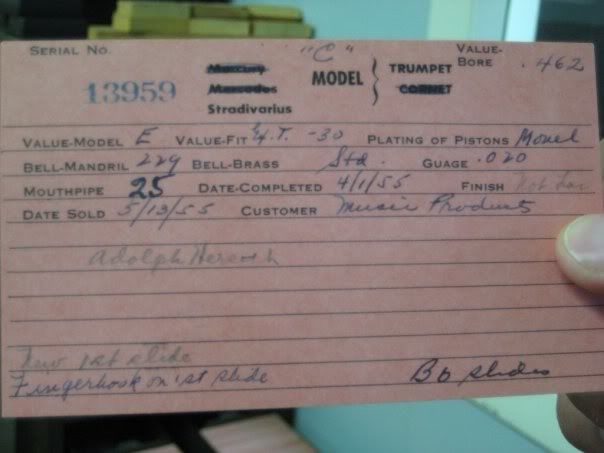 SERIAL NO. "C" VALUE-BORE .462
13959 Mercury MODEL } TRUMPET
Mercedes CORNET
Stradivarius
VALUE-MODEL E VALUE-FIT L.T. -30 PLATING OF PISTONS Monel
BELL-MANDRIL 229 BELL-BRASS Std. GUAGE .020
MOUTHPIPE 25 DATE-COMPLETED 4/1/55 FINISH Not Lac
DATE SOLD 5/13/55 CUSTOMER Music Products
Adolph
Two 1st slide
Fingerhook on 1st slide Bb slides